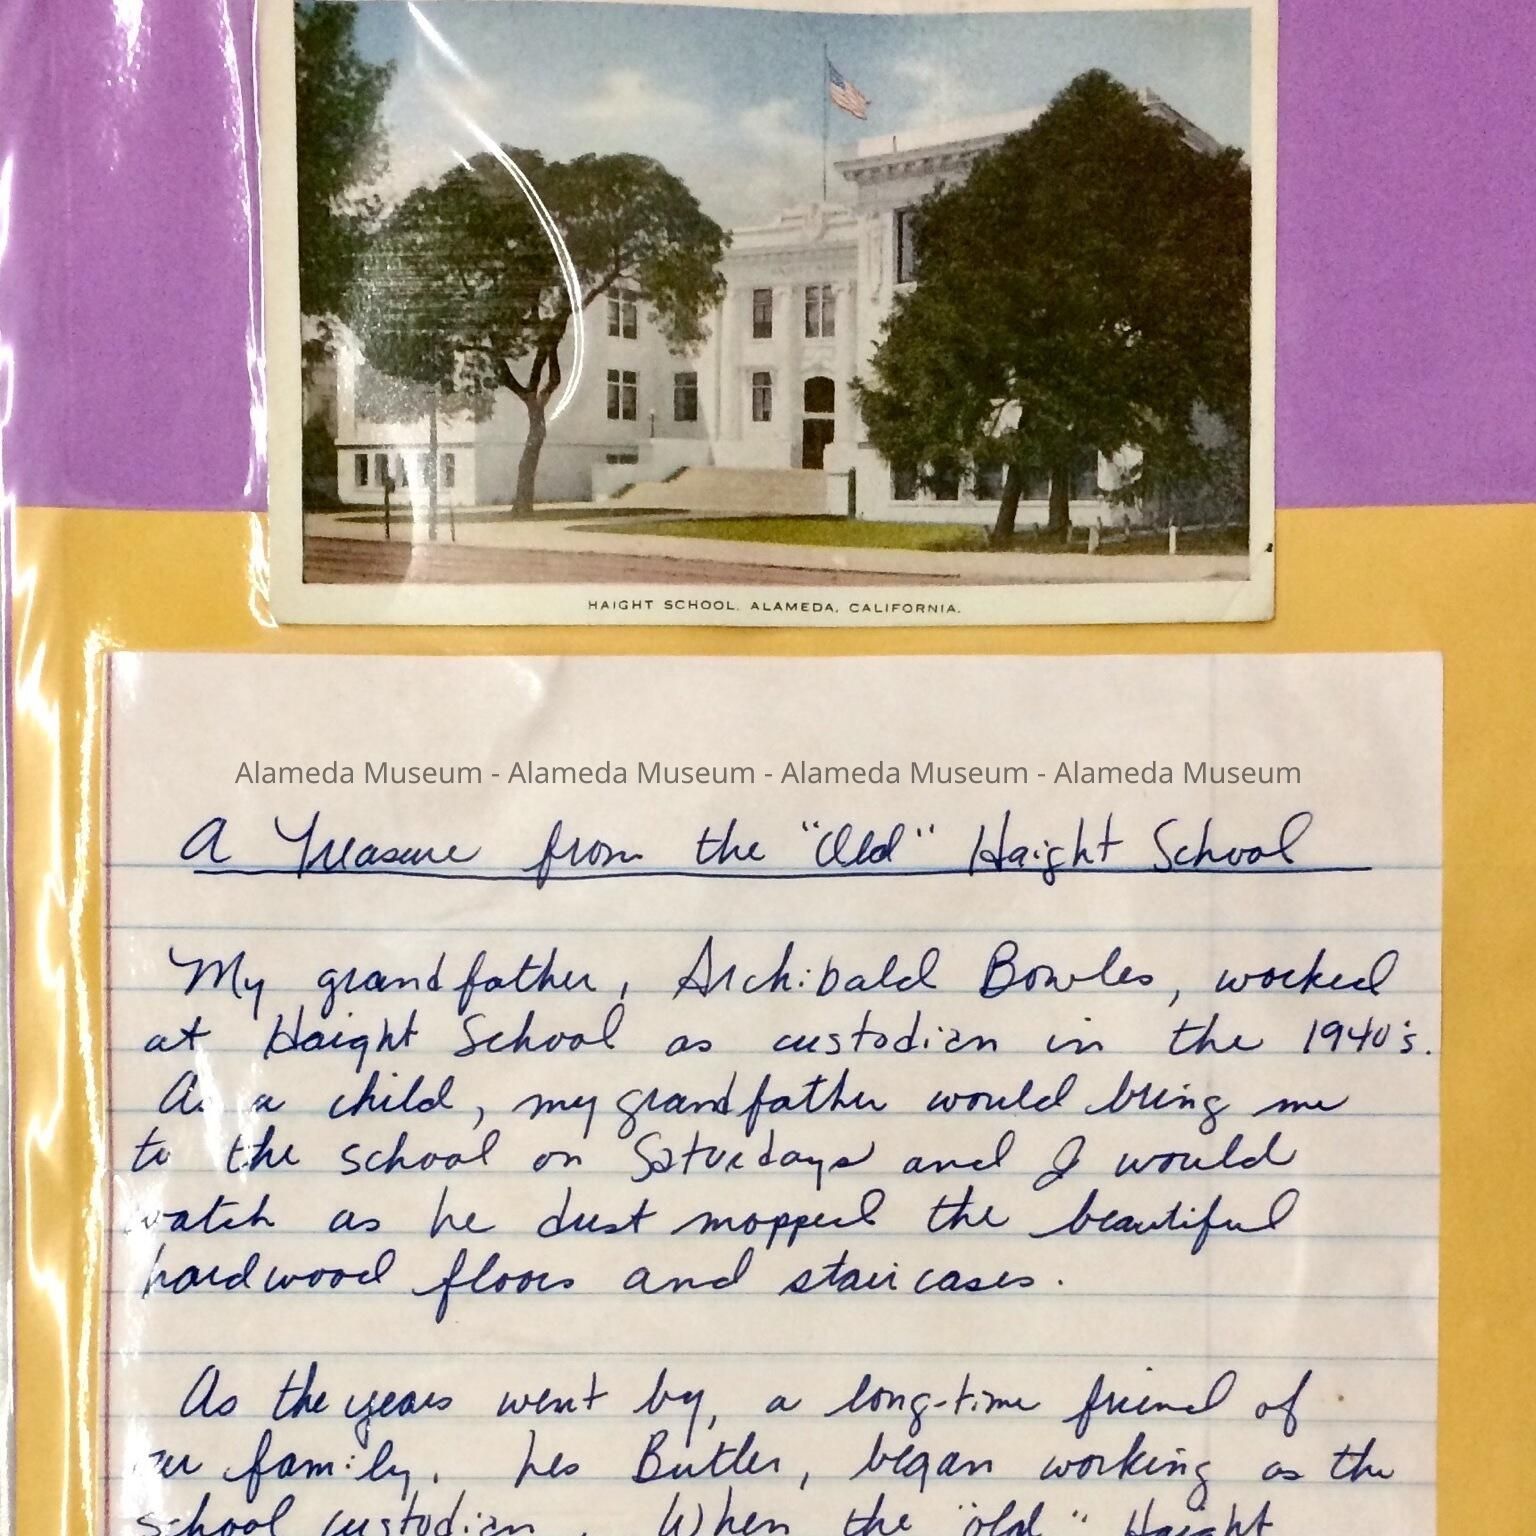 HAIGHT SCHOOL, ALAMEDA, CALIFORNIA.
Alameda Museum - Alameda Museum - Alameda Museum - Alameda Museum
A Treasure from the "Old" Haight School
My grandfather, Archibald Bowles, worked
at Haight School as custodian in the 1940's.
As a child, my grandfather would bring me
to the school on Saturdays and I would
watch as he dust mopped the beautiful
hardwood floors and staircases.
As the years went by, a long-time friend of
our family, Les Butler, began working as the
school custodian. When the "old" Haight